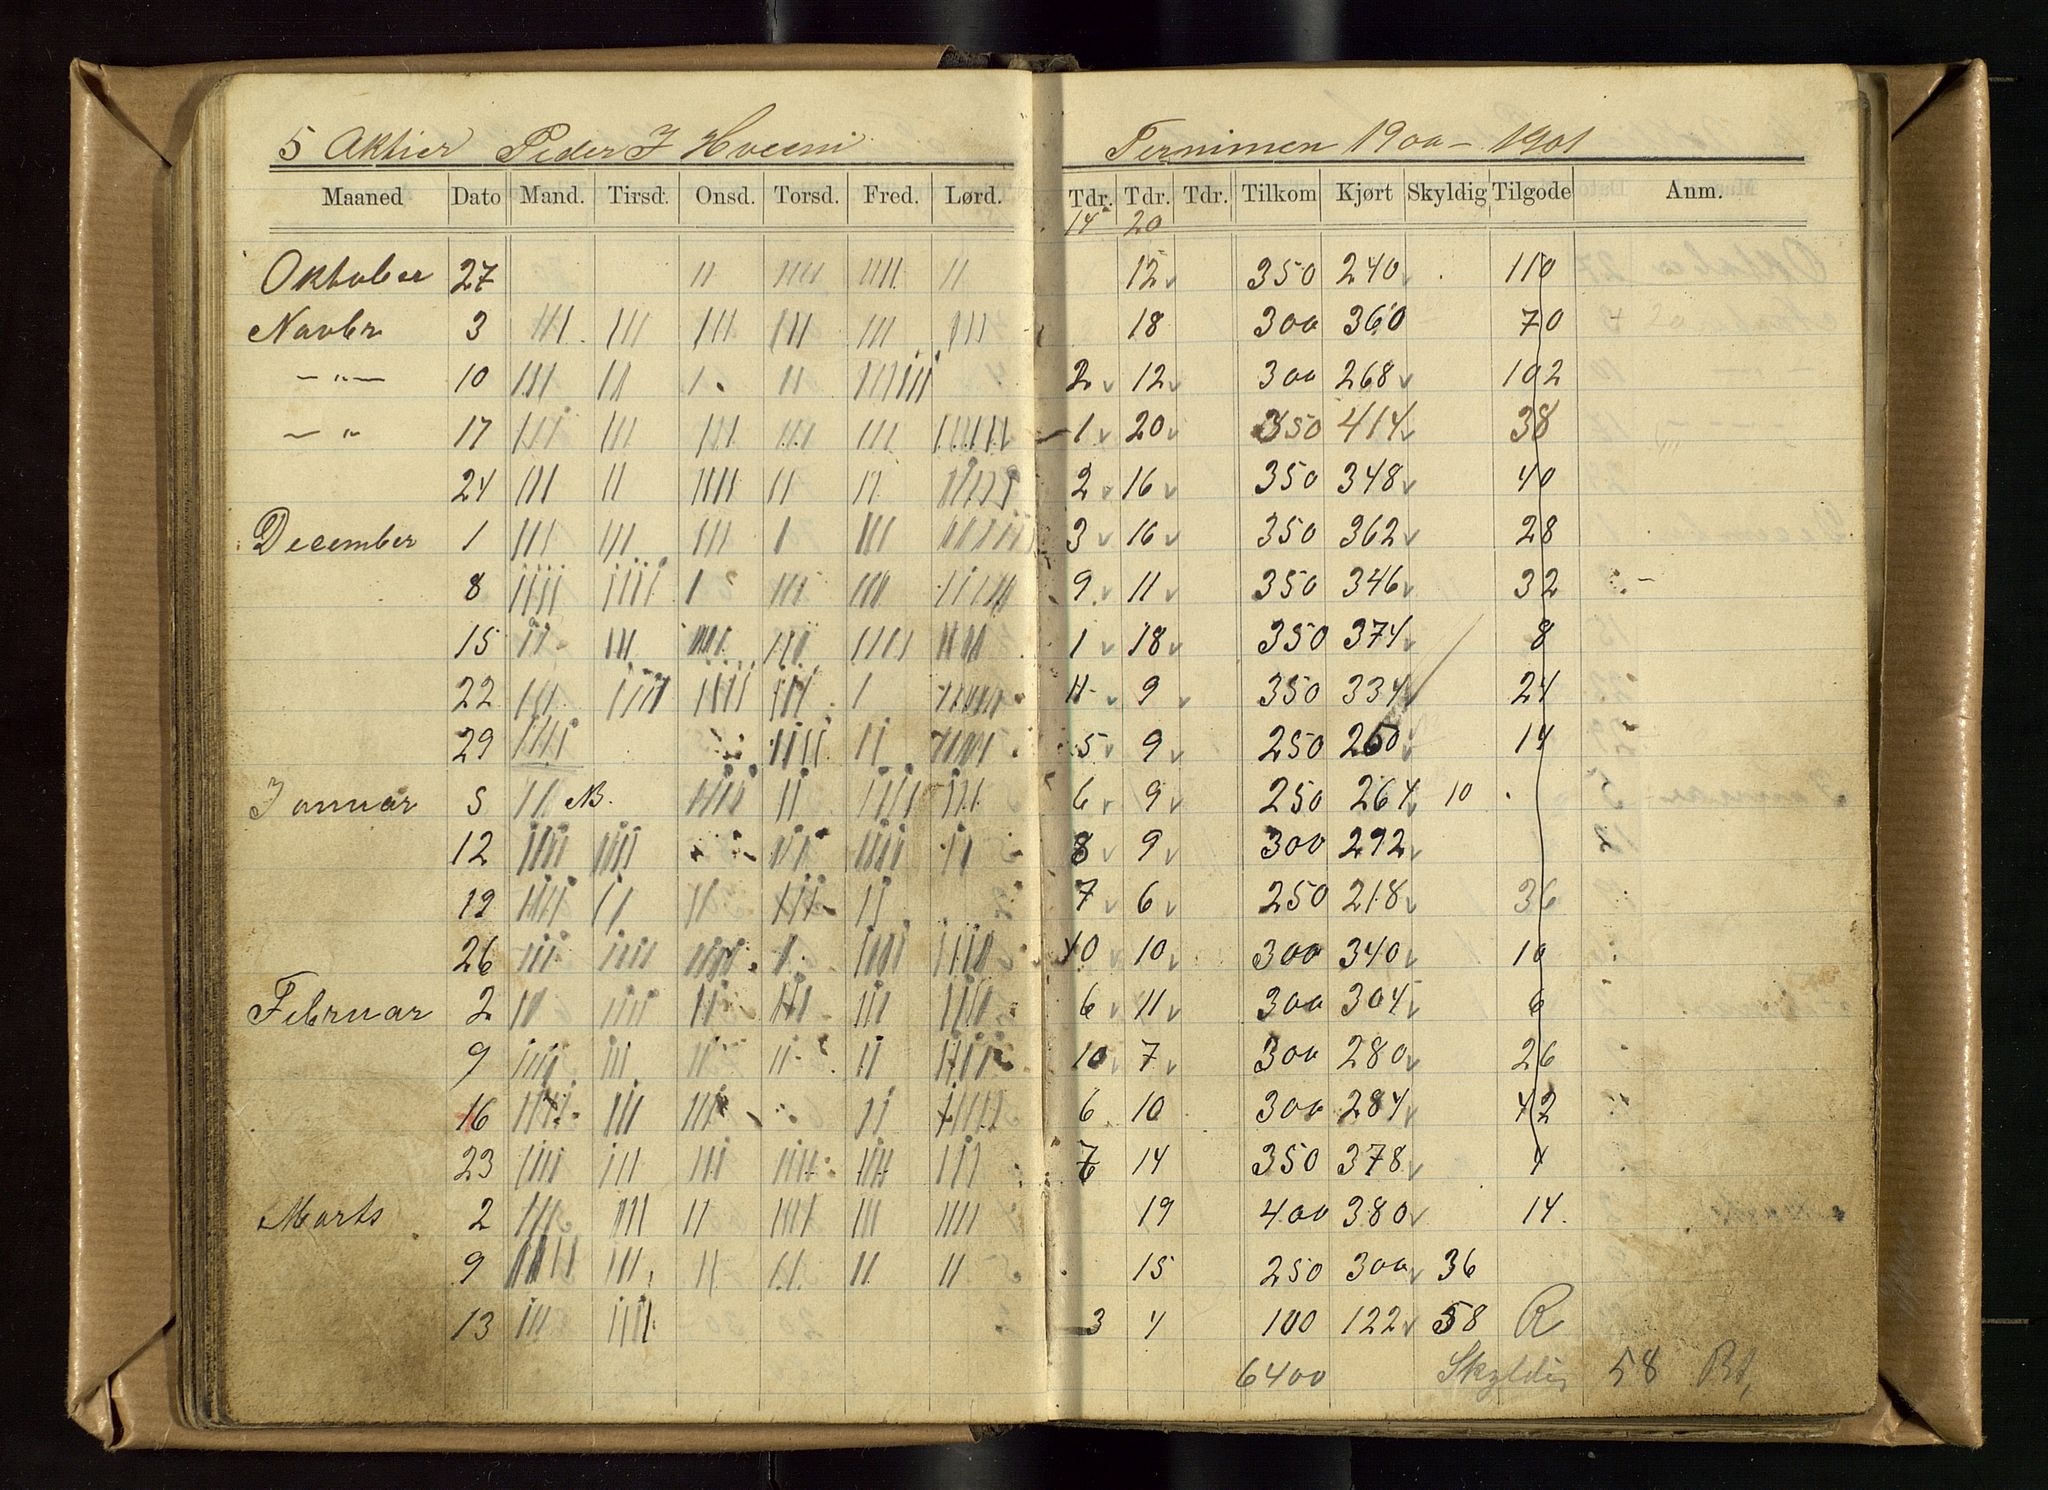 5 Aktier Peder J Hveem Terminen 1900 - 1901
Maaned Dato Mand. Tirsd. Onsd. Torsd. Fred. Lørd. Tdr. Tdr. Tdr. Tilkom Kjørt Skyldig Tilgode Anm.
14 20
Oktober 27 II IIII IIII II 12 350 240 110
Novbr 3 III III III III III III 18 300 360 70
— " — 10 III II I II IIIIII 2 12 300 268 102
— " 17 III III III III III IIIIII 1 20 350 414 38
24 III II IIII II II 2 16 350 348 40
December 1 III III III I III 3 16 350 362 28
8 IIII IIII I III III 9 11 350 346 32
15 III III IIII III IIII 1 18 350 374 8
22 III IIII IIII III I 11 9 350 334 24
29 IIII IIII II 5 9 250 260 14
Januar 5 II NB. IIII II IIII III 6 9 250 264 10
12 IIII IIII II IIII II 8 9 300 292
19 IIII II II III II 7 6 250 218 36
26 III IIII IIII I IIII IIII 10 10 300 340 10
Februar 2 II III II II III IIII 6 11 300 304 6
9 III III II II II IIII 10 7 300 280 26
16 IIII III III II 6 10 300 284 42
23 III III III III III III 7 14 350 378 4
Marts 2 III III II IIII III IIII 19 400 380 14.
9 IIII III II II II II 15 250 300 36
13 III IIII 3 4 100 122 58 R
6400 Skyldig 58